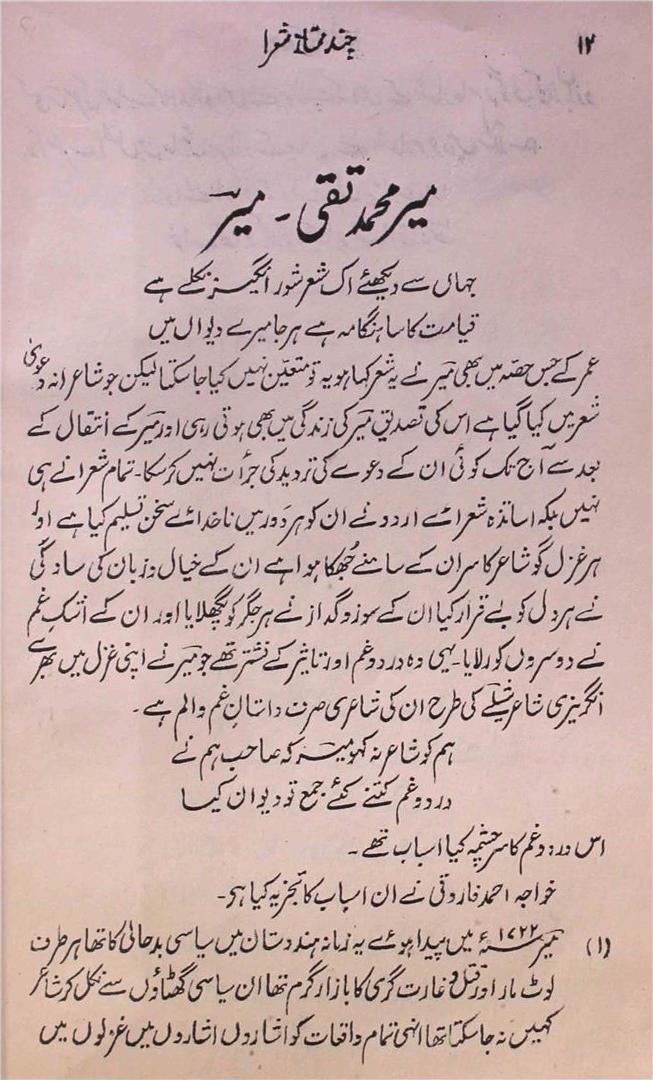 ۱۲
چند ممتاز شعرا
میر محمد تقی ۔ میرؔ
جہاں سے دیکھئے اک شعر شور انگیز نکلے ہے
قیامت کا سا ہنگامہ ہے ہر جا میرے دیواں میں
عمر کے جس حصہ میں بھی میرؔ نے یہ شعر کہا ہو یہ تو متعیّن نہیں کیا جا سکتا لیکن جو شاعرانہ دعویٰ
شعر میں کیا گیا ہے اس کی تصدیق میرؔ کی زندگی میں بھی ہوتی رہی اور میرؔ کے انتقال کے
بعد سے آج تک کوئی ان کے دعوے کی تردید کی جرأت نہیں کر سکا۔ تمام شعرا نے ہی
نہیں بلکہ اساتذہ شعرائے اردو نے ان کو ہر دَور میں ناخدائے سخن تسلیم کیا ہے اور
ہر غزل گو شاعر کا سر ان کے سامنے جُھکا ہوا ہے ان کے خیال و زبان کی سادگی
نے ہر دل کو بے قرار کیا ان کے سوز و گداز نے ہر جگر کو پگھلایا اور ان کے اشکِ غم
نے دوسروں کو رلایا۔ یہی وہ درد و غم اور تاثیر کے نشتر تھے جو میرؔ نے اپنی غزل میں بھرے
انگریزی شاعر شیلےؔ کی طرح ان کی شاعری صرف داستانِ غم و الم ہے۔
ہم کو شاعر نہ کہو میرؔ کہ صاحب ہم نے
درد و غم کتنے کئے جمع تو دیوان کیا
اس درد و غم کا سرچشمہ کیا اسباب تھے۔
خواجہ احمد فاروقی نے ان اسباب کا تجزیہ کیا ہے۔
(۱) میرؔ ۱۷۲۲ء میں پیدا ہوئے یہ زمانہ ہندوستان میں سیاسی بدحالی کا تھا ہر طرف
لوٹ مار اور قتل و غارت گری کا بازار گرم تھا ان سیاسی گھٹاؤں سے نکل کر شاعر
کہیں نہ جا سکتا تھا انہی تمام واقعات کو اشاروں اشاروں میں غزلوں میں